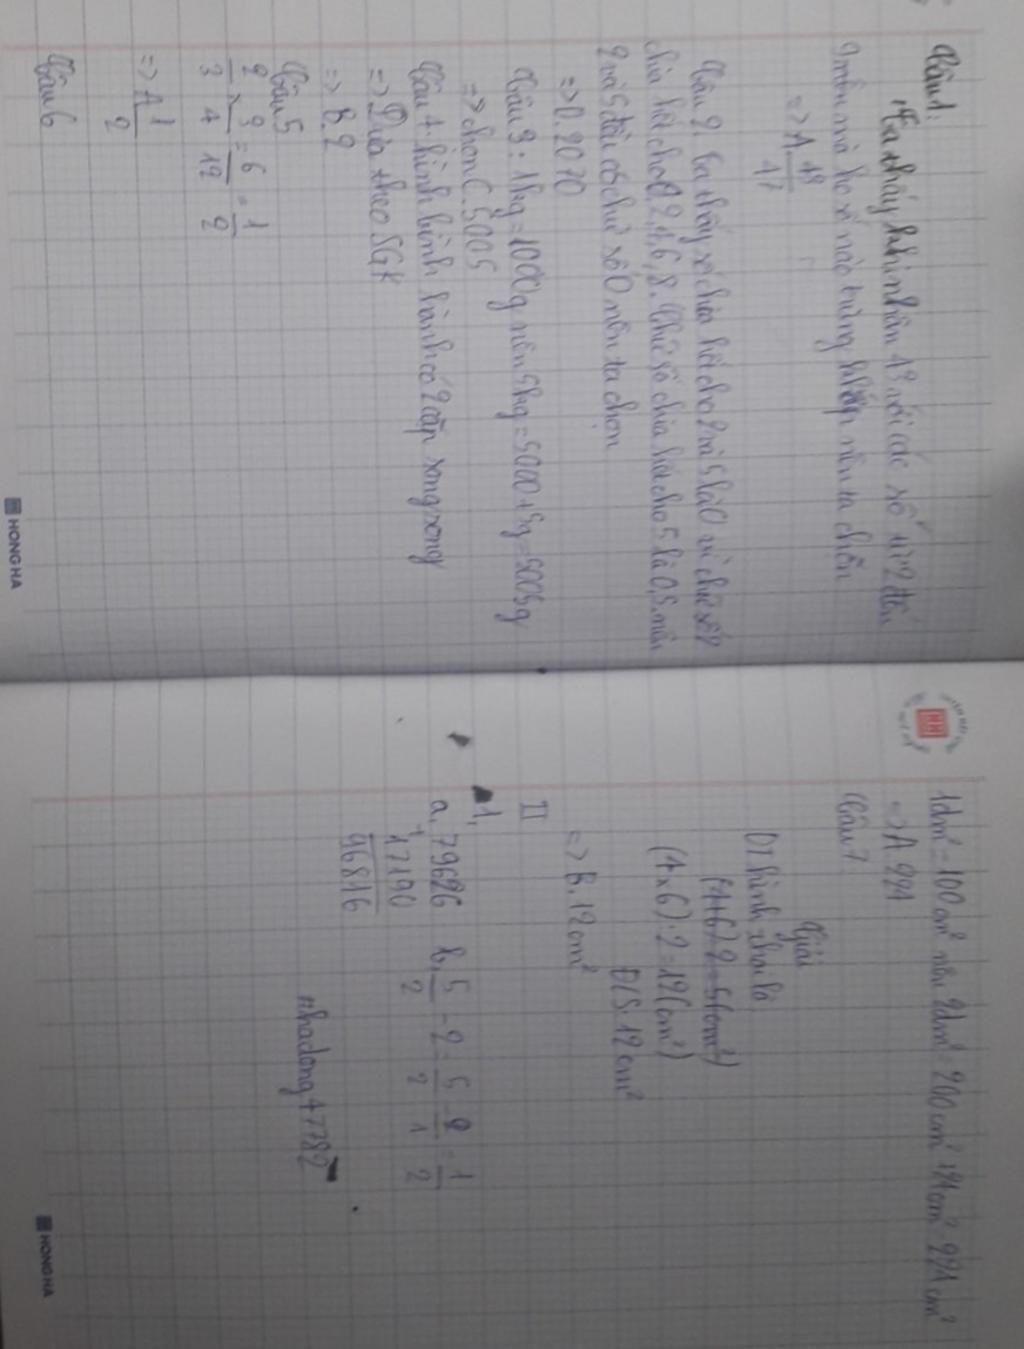 Câu 1:
Ta thấy khi nhân 13 với các số từ 2 đến
9 mà ko số nào trùng khớp nên ta chọn
=> A 13/17
Câu 2. Ta thấy số chia hết cho 2 và 5 là 0 vì chữ số
chia hết cho 0, 2, 4, 6, 8. Chữ số chia hết cho 5 là 0, 5. mà
2 và 5 đều có chữ số 0 nên ta chọn
=> D. 2070
Câu 3: 1kg = 1000g nên 5kg = 5000 + 5g = 5005g
=> chọn C. 5005
Câu 4. hình bình hành có 2 cặp song song
=> Dựa theo SGK
=> B. 2
Câu 5
2/3 x 3/4 = 6/12 = 1/2
=> A 1/2
Câu 6
HONG HA
1dm² = 100cm² nên 2dm² = 200cm² + 21cm² = 221cm²
=> A 221
Câu 7
Giải
DT hình thoi là
(4+6):2=5(cm²)
(4x6):2=12(cm²)
Đ/S: 12cm²
=> B. 12cm²
II
1,
a, 79626 b, 5/2 - 2 = 5/2 - 2/1 = 1/2
+ 17190
96816
nhadong47782
HONG HA